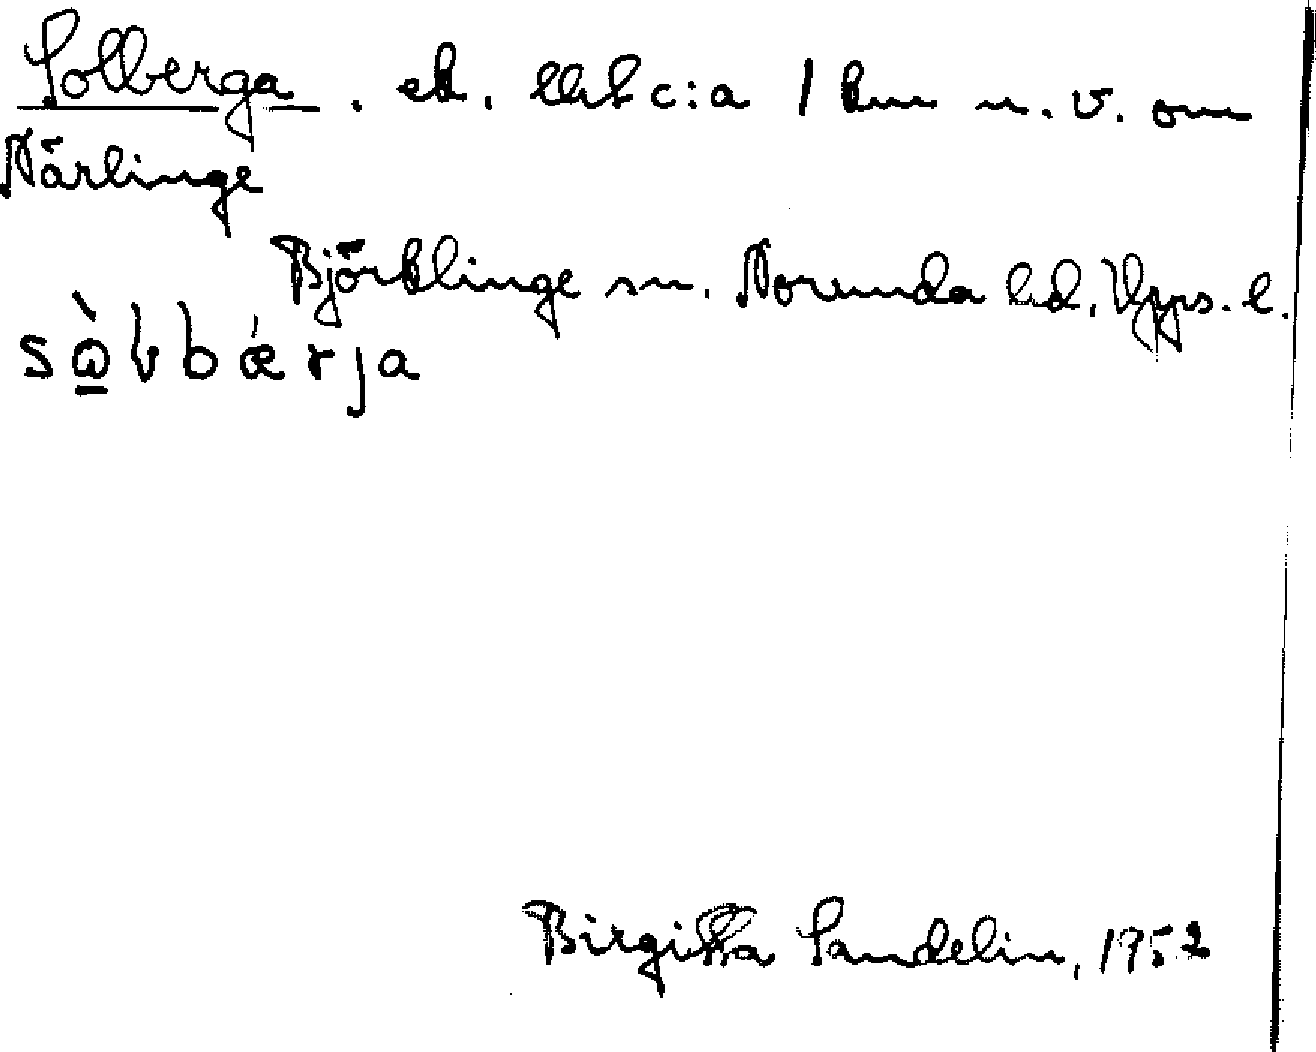 Solberga. ek. ekl c:a 1 km n.v. om
Närlinge
Björklinge sn. Norunda hd. Upps. l.
sὼƚbǽrja
Birgitta Sandelin, 1952